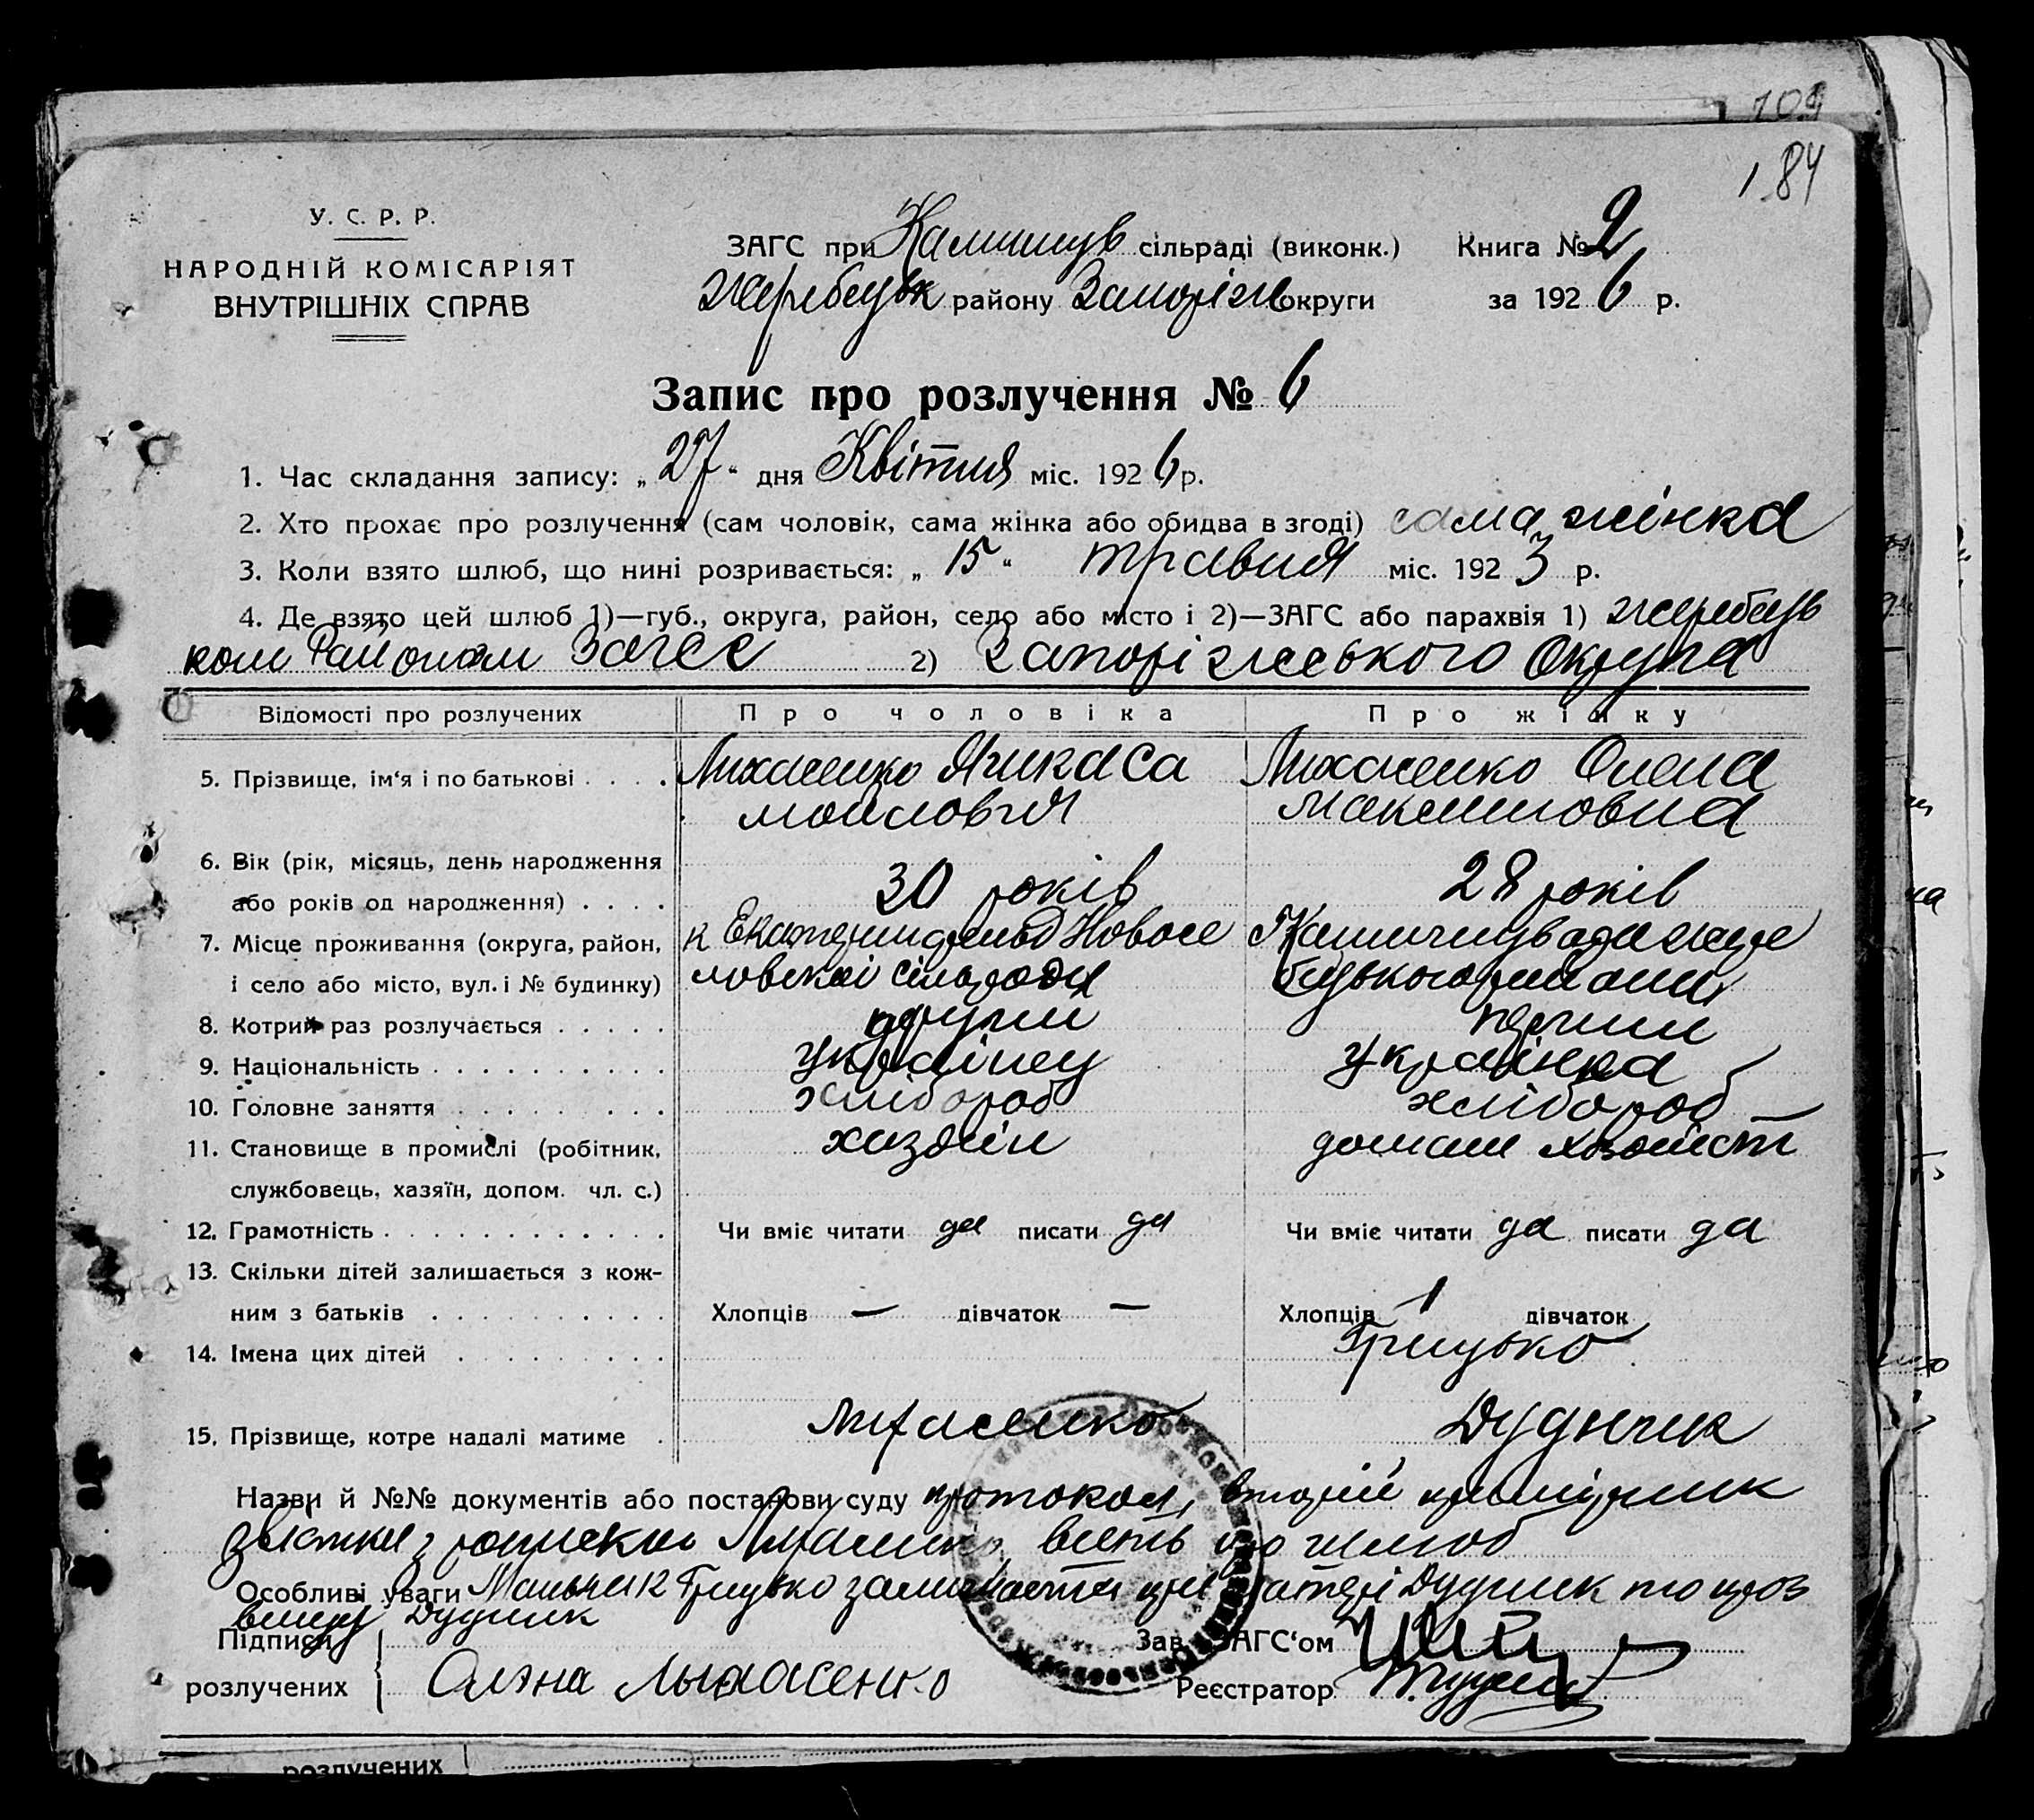 109
184
У. С. Р. Р.
НАРОДНІЙ КОМІСАРІЯТ
ВНУТРІШНІХ СПРАВ
ЗАГС при Камишув сільраді (виконк.) Книга № 2
Жеребецьк району Запоріж округи за 1926 р.
Запис про розлучення № 6
1. Час складання запису: „27“ дня Квітня міс. 1926 р.
2. Хто прохає про розлучення (сам чоловік, сама жінка або обидва в згоді) сама жінка
3. Коли взято шлюб, що нині розривається: „15“ травня міс. 1923 р.
4. Де взято цей шлюб 1)—губ., округа, район, село або місто і 2)—ЗАГС або парахвія 1) жеребець
ком Районом Загсе 2) Запоріжського Округа
Відомості про розлучених Про чоловіка Про жінку
5. Прізвище, ім‘я і по батькові Лихасенко Яким Са
мойлович
Лихасенко Олена
Максимовна
6. Вік (рік, місяць, день народження
або років од народження) 30 років 28 років
7. Місце проживання (округа, район,
і село або місто, вул. і № будинку)
к Новосе
ловскоі сільради
жере
бецького району
8. Котрий раз розлучається другий перший
9. Національність українец українка
10. Головне заняття хлібороб хлібороб
11. Становище в промислі (робітник,
службовець, хазяїн, допом. чл. с.) хазяїн домаш хазяйст
12. Грамотність Чи вміє читати да писати да Чи вміє читати да писати да
13. Скільки дітей залишається з кож-
ним з батьків Хлопців — дівчаток — Хлопців 1 дівчаток
14. Імена цих дітей Грицько
15. Прізвище, котре надалі матиме Лихасенко Дудник
Назви й №№ документів або постанови суду протокол, вторій примірник
звістки з роспискою Лихасенко, про шлюб
Особливі уваги Мальчик Грицько залишается при матері Дудник по проз
вищу Дудник
Підписи
розлучених Олэна Лыхасенко
Зав. ЗАГС‘ом
Реєстратор
розлучених